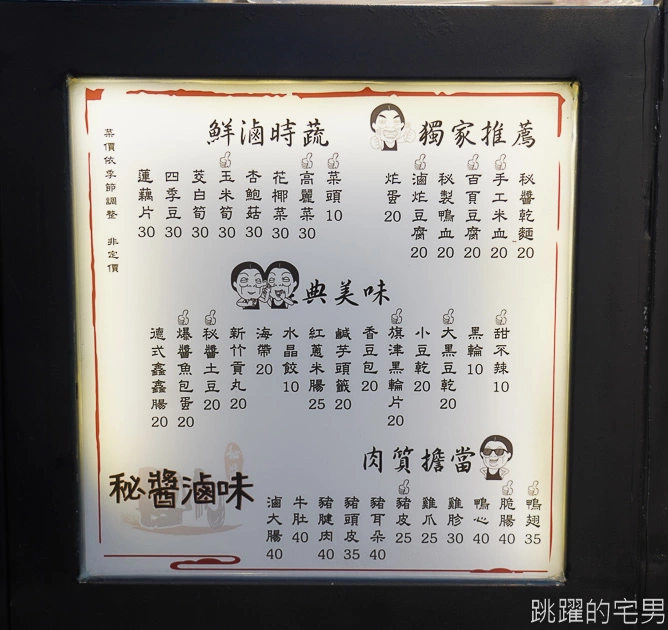 獨家推薦
秘醬乾麵 20
手工米血 20
百頁豆腐 20
秘製鴨血 20
滷炸豆腐 20
炸蛋 20
鮮滷時蔬
菜頭 10
高麗菜 30
花椰菜 30
杏鮑菇 30
玉米筍 30
茭白筍 30
四季豆 30
蓮藕片 30
菜價依季節調整 非定價
典美味
甜不辣 10
黑輪 10
大黑豆乾 20
小豆乾 20
旗津黑輪片 20
香豆包 20
鹹芋頭籤 20
紅蔥米腸 25
水晶餃 10
海帶 20
新竹貢丸 20
秘醬土豆 20
爆醬魚包蛋 20
德式鑫鑫腸 20
肉質擔當
鴨翅 35
脆腸 40
鴨心 40
雞胗 30
雞爪 25
豬皮 25
豬耳朵 40
豬頭皮 35
豬腱肉 40
牛肚 40
滷大腸 40
秘醬滷味
跳躍的宅男